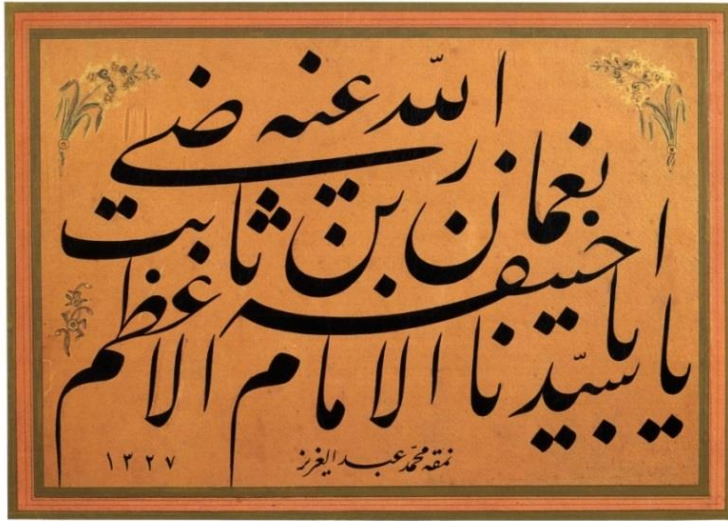 يا سيّدنا الامام الاعظم
ابا حنيفه
نعمان بن ثابت
رضى الله عنه
نمقه محمّد عبد العزيز
١٣٢٧